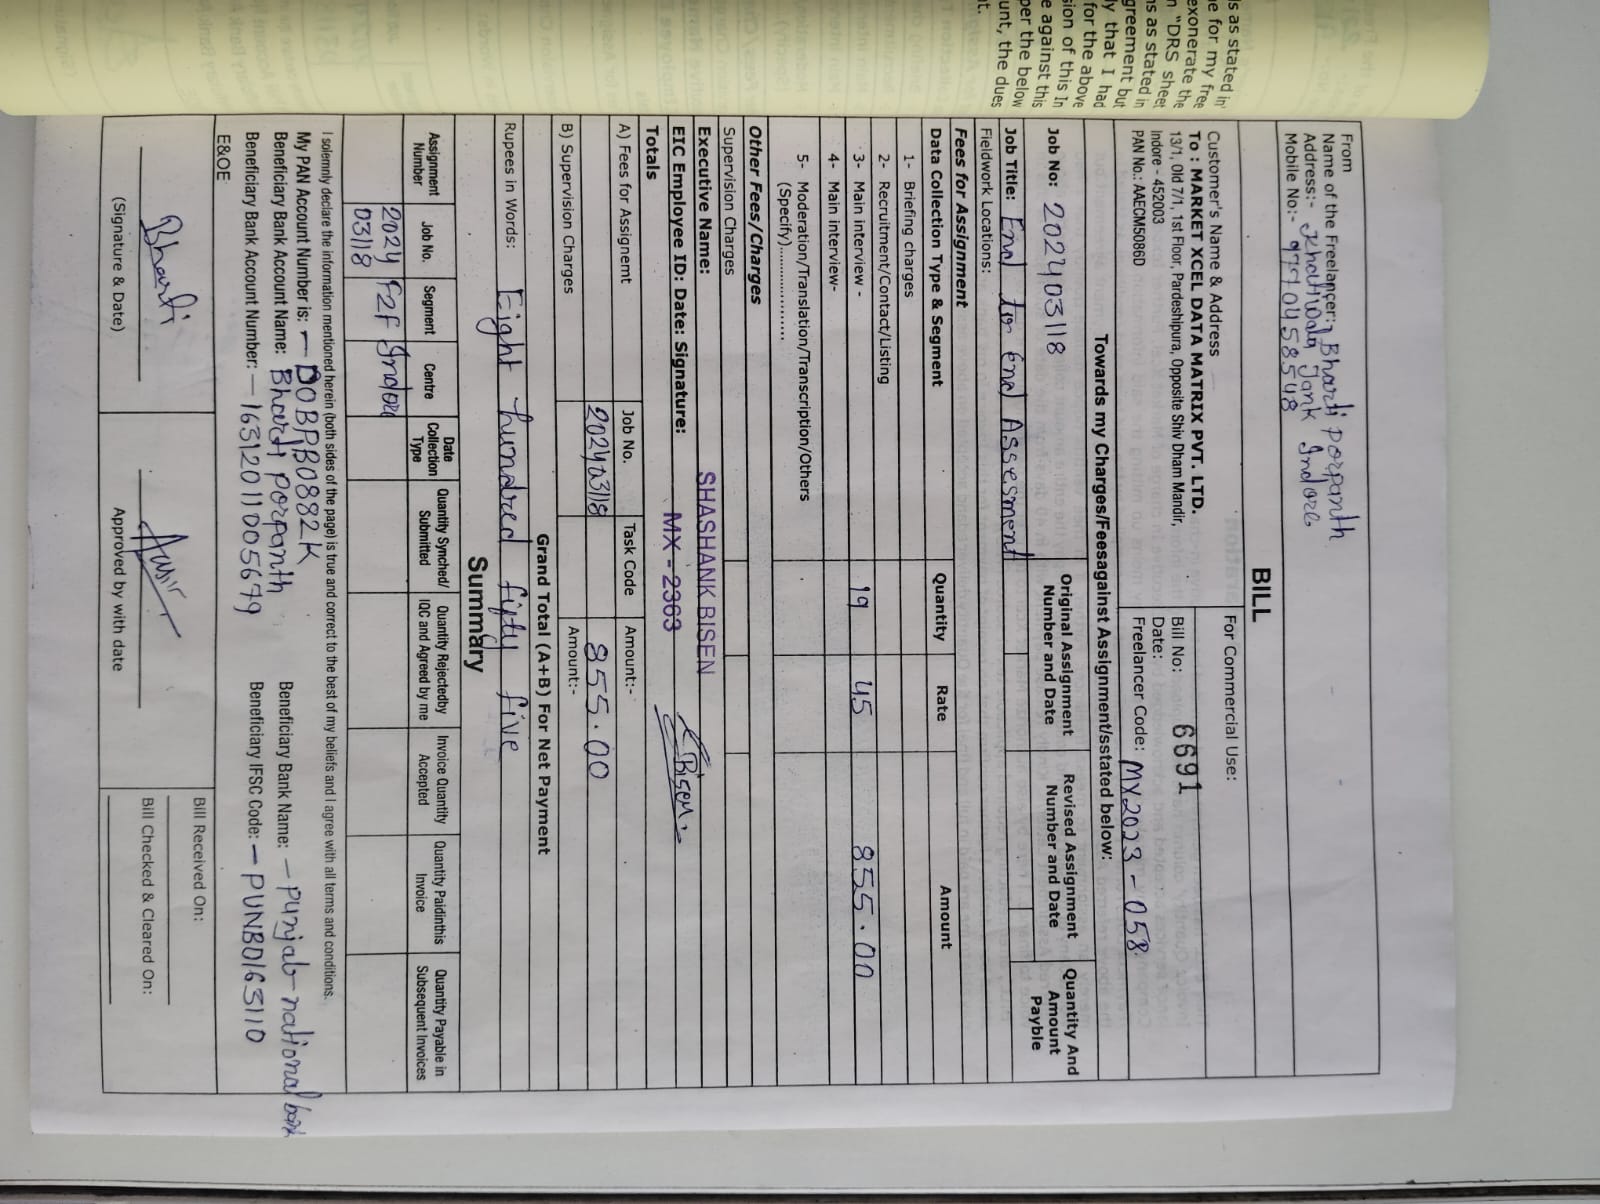 ls as stated in
e for my free
exonerate the
n "DRS sheet
ns as stated in
greement but
ly that I had
for the above
sion of this In
e against this
per the below
unt, the dues
nt.
From
Name of the Freelancer:- Bharti porpanth
Address:- Khatiwala Tank Indore
Mobile No:-
BILL
Customer's Name & Address
For Commercial Use:
To : MARKET XCEL DATA MATRIX PVT. LTD.
13/1, Old 7/1, 1st Floor, Pardeshipura, Opposite Shiv Dham Mandir,
Indore - 452003
PAN No.: AAECM5086D
Bill No: 6691
Date:
Freelancer Code: MX2023-058
Towards my Charges/Feesagainst Assignment/sstated below:
Job No: 202403118
Original Assignment Number and Date
Revised Assignment Number and Date
Quantity And Amount Payble
Job Title: End to End Assesment
Fieldwork Locations:
Fees for Assignment
Data Collection Type & Segment Quantity Rate Amount
1- Briefing charges
2- Recruitment/Contact/Listing
3- Main interview - 19 45 855.00
4- Main interview-
5- Moderation/Translation/Transcription/Others
(Specify)................
Other Fees/Charges
Supervision Charges
Executive Name: SHASHANK BISEN
EIC Employee ID: Date: Signature: MX-2363 Bisen
Totals
A) Fees for Assignemt Job No. Task Code Amount:-
202403118 855.00
B) Supervision Charges Amount:-
Grand Total (A+B) For Net Payment
Rupees in Words: Eight hundred fifty five
Summary
Assignment Number Job No. Segment Centre Date Collection Type Quantity Synched/ Submitted Quantity Rejectedby IQC and Agreed by me Invoice Quantity Accepted Quantity Paidinthis Invoice Quantity Payable in Subsequent Invoices
2024 03118 F2F Indore
I solemnly declare the information mentioned herein (both sides of the page) is true and correct to the best of my beliefs and I agree with all terms and conditions.
My PAN Account Number is: - DOBPB0882K
Beneficiary Bank Account Name: Bharti porpanth Beneficiary Bank Name: - Punjab national bank
Beneficiary Bank Account Number: - 16312011005679 Beneficiary IFSC Code: - PUNB0163110
E&OE
Bharti
(Signature & Date)
Approved by with date
Bill Received On:
Bill Checked & Cleared On: